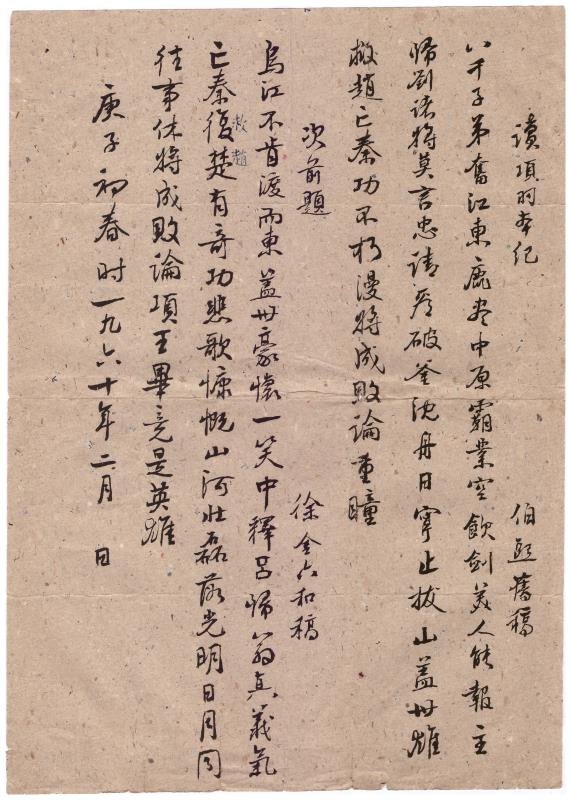 讀項羽本紀
伯熙舊稿
八千子弟奮江東鹿走中原霸業空飲劍美人能報主
歸劉諸將莫言忠請看破釜沈舟日寧止拔山蓋世雄
救趙亡秦功不朽漫將成敗論重瞳
次前題
徐金六和稿
烏江不肯渡而東蓋世豪懷一笑中釋呂歸翁真義氣
亡秦復楚有奇功悲歌慷慨山河壯磊落光明日月同
救趙
往事休將成敗論項王畢竟是英雄
庚子初春时一九六十年二月 日